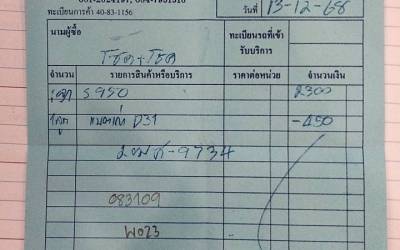 ทะเบียนการค้า 40-83-1156
วันที่ 13-12-68
นามผู้ซื้อ
ทะเบียนรถที่เข้า
รับบริการ
โชค+โชค
จำนวน รายการสินค้าหรือบริการ ราคาต่อหน่วย จำนวนเงิน
1ลูก S 950 2300
1ลูก แบตเก่า D31 -450
9734
083109
W023